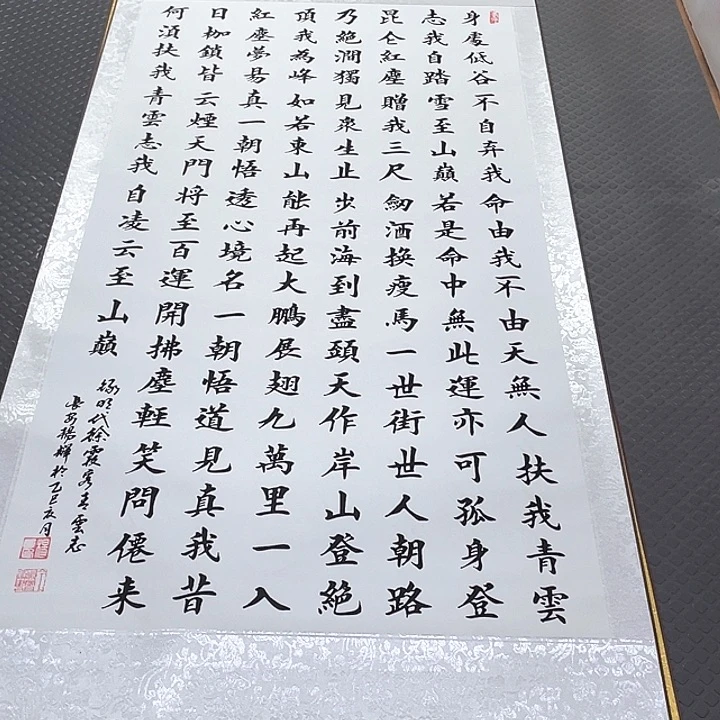 身處低谷不自弃我命由我不由天無人扶我青雲
志我自踏雪至山巔若是命中無此運亦可孤身登
昆仑紅塵贈我三尺劒酒換瘦馬一世街世人朝路
乃絕澗獨見衆生止步前海到盡頭天作岸山登絕
頂我為峰如若東山能再起大鵬展翅九萬里一入
紅塵夢易真一朝悟透心境名一朝悟道見真我昔
日枷鎖皆云煙天門将至百運開拂塵輊笑問僊来
何湏扶我青雲志我自凌云至山巔
録明代徐霞客青雲志
長安楊輝於乙巳夏月